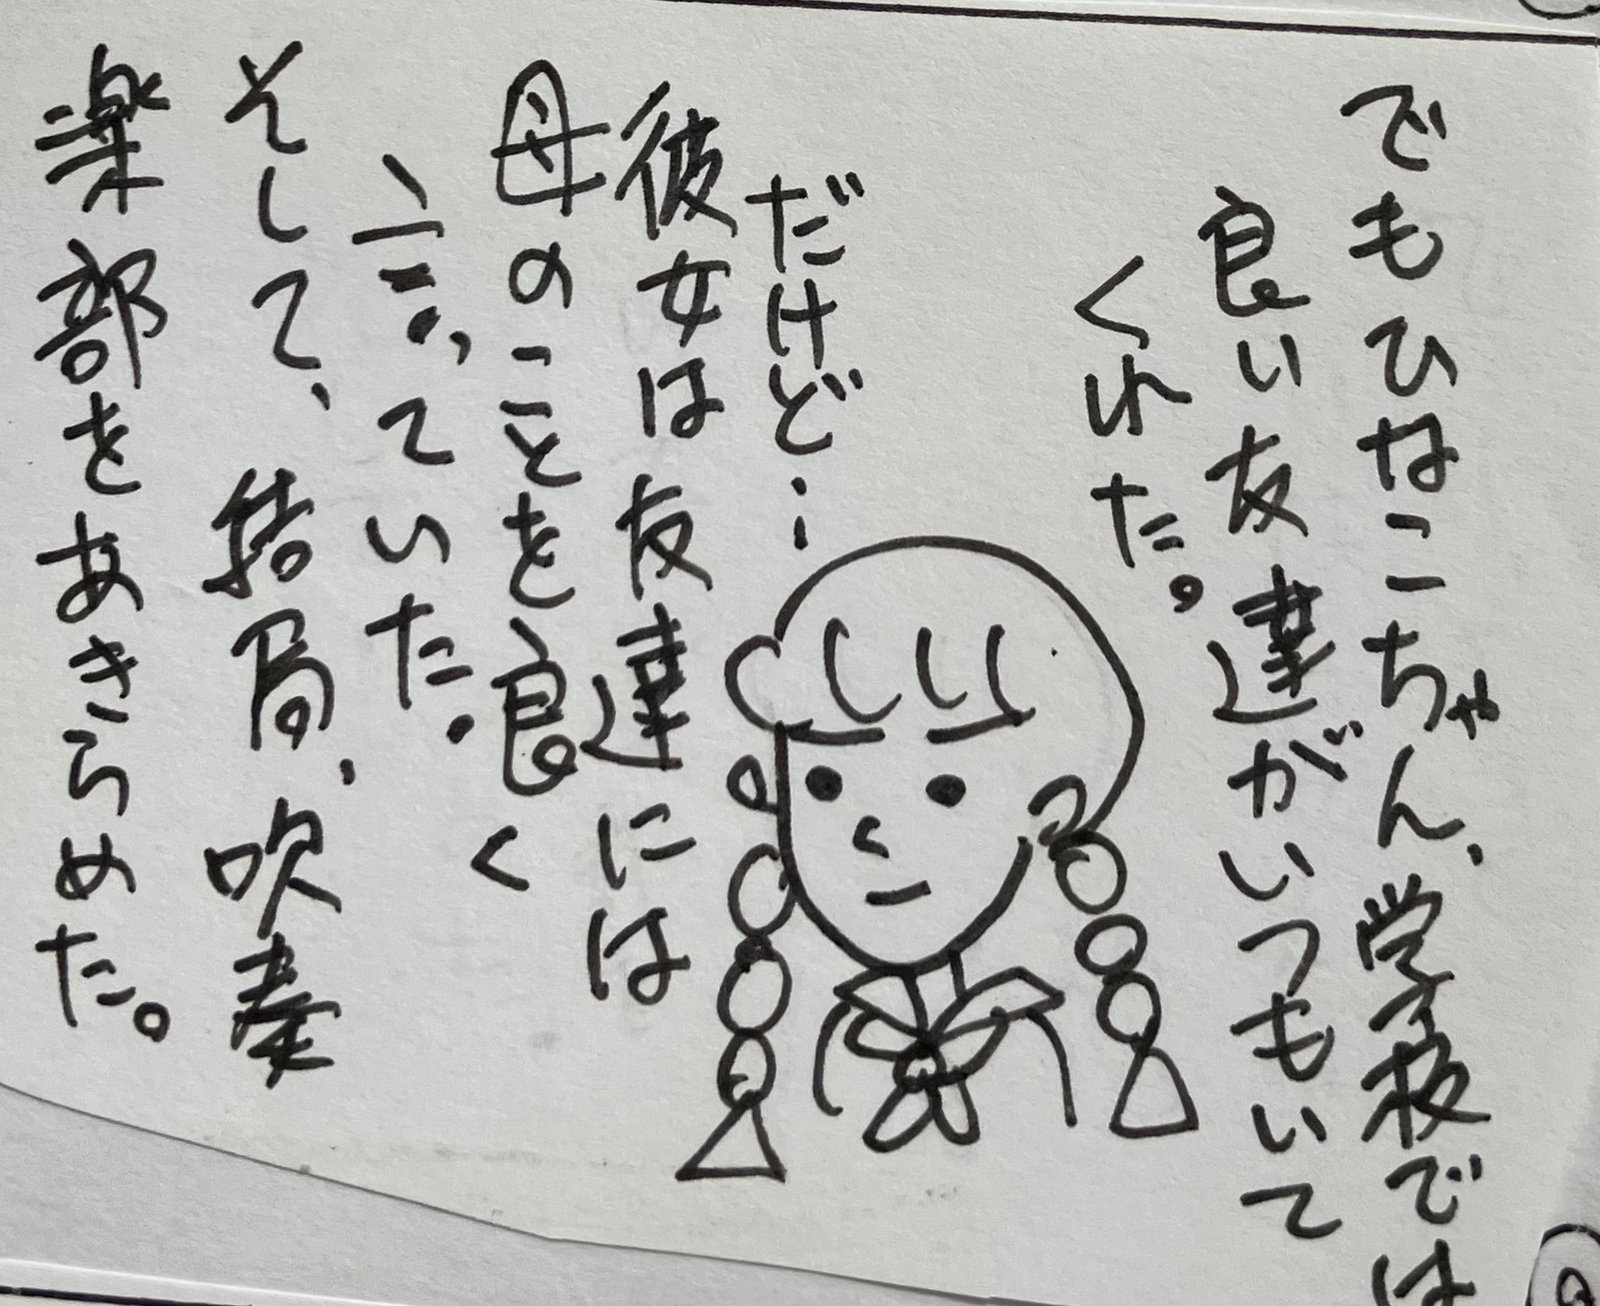 でもひなこちゃん、学校では
良い友達がいつもいて
くれた。
だけど…
彼女は友達には
母のことを良く
言っていた。
そして、結局、吹奏
楽部をあきらめた。